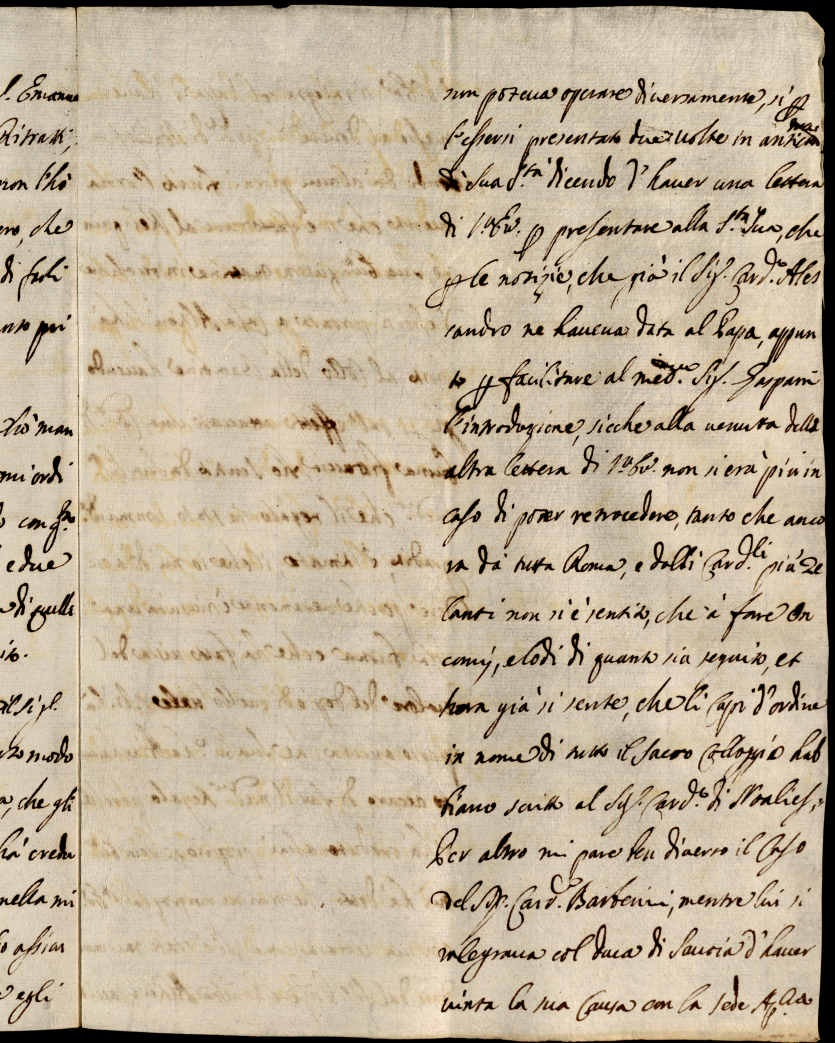 S. Emanue
Ritratti,
non l'hò
ero, che
di farli
anto pri
che man
mi ordi
e due
di quelle
ito.
il sig.r
modo
a, che gli
hà credu
nella mi
o assicur
e egli
non poteva operare diversamente, sì p
l'essersi presentato due volte in anticam
di Sua S.tà dicendo d'haver una lettera
di V. Em. p presentare alla S.tà Sua, che
p le notizie, che già il Sig. Card.e Ales
sandro ne haveva data al Papa, appun
to p facilitare al med.o Sig. Gasparri
l'introduzione, sicche alla venuta della
altra lettera di V. Em. non si era più in
caso di poter retrocedere, tanto che anco
ra da tutta Roma, e dalli Card.li più ze
lanti non si è sentito, che à fare En
comij, e lodi di quanto sia seguito, et
hora già si sente, che li Capi d'ordine
in nome di tutto il Sacro Colloggio hab
biano scritto al Sig. Card.e di Noalies,
Per altro mi pare ben diverso il Caso
del Sig. Card.e Barberini, mentre lui si
ralegrava col Duca di Savoia d'haver
vinta la sua Causa con la Sede Ap.lica